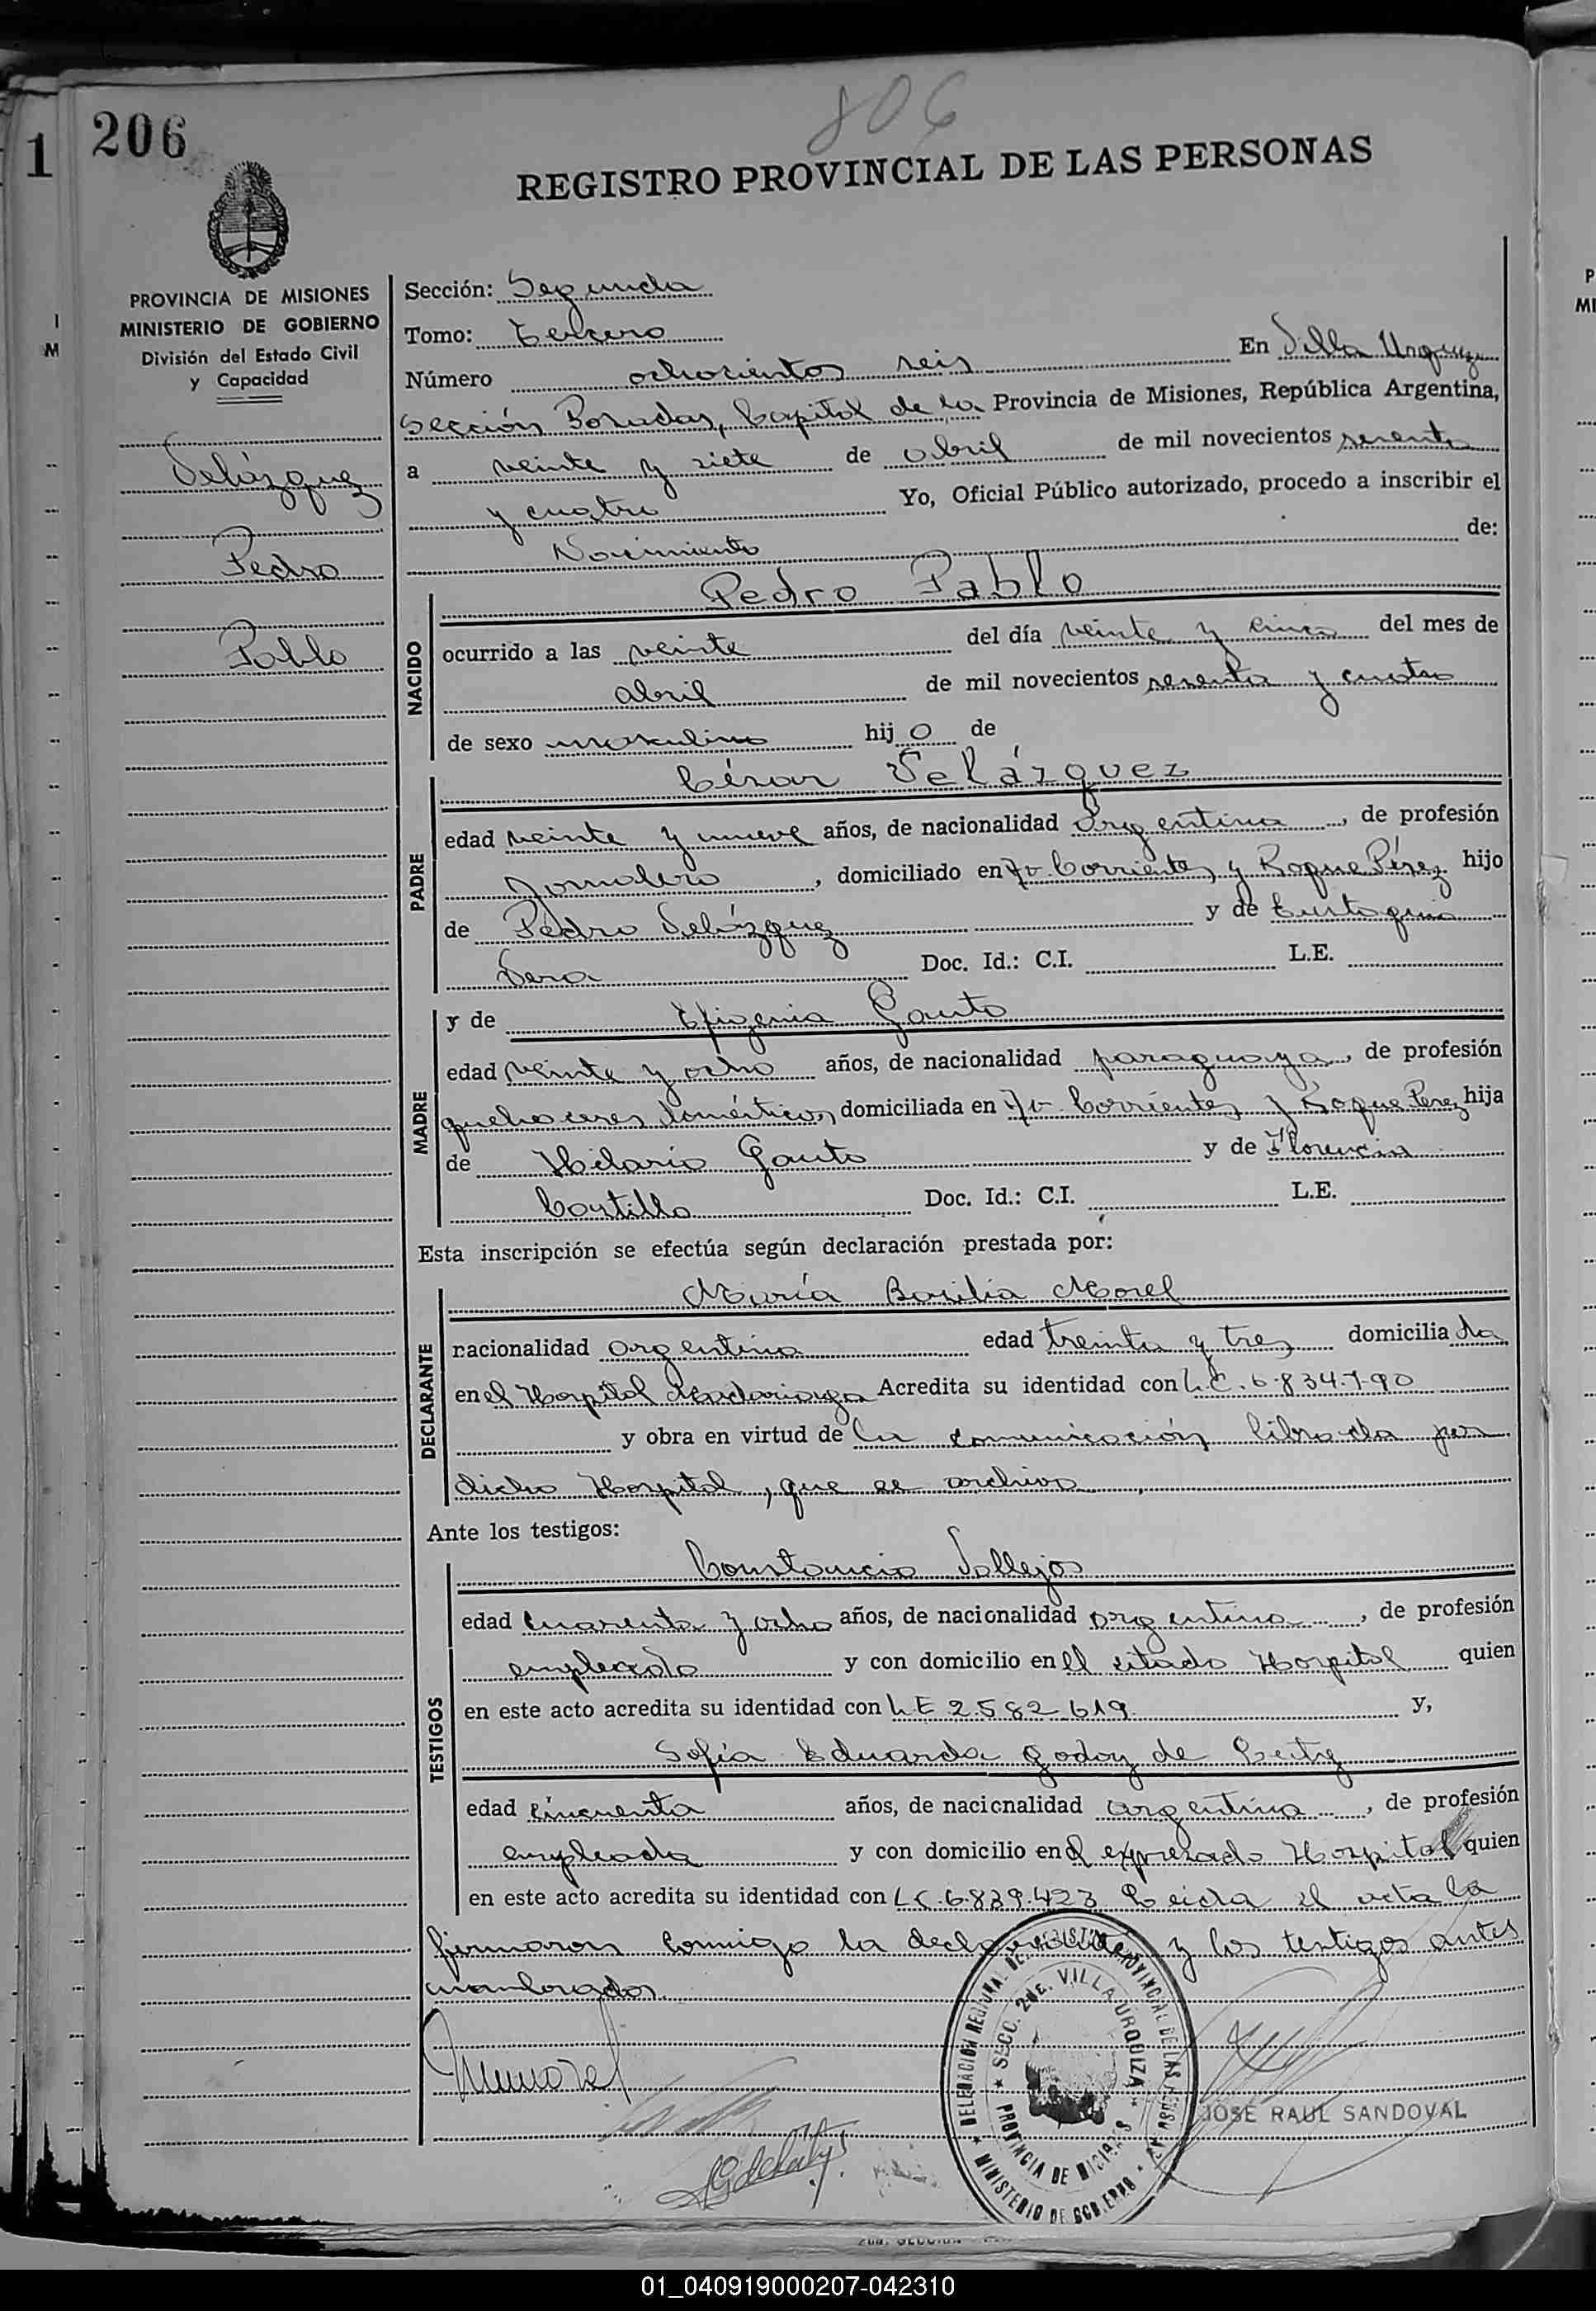 806
206
1
REGISTRO PROVINCIAL DE LAS PERSONAS
PROVINCIA DE MISIONES
MINISTERIO DE GOBIERNO
División del Estado Civil
y Capacidad
Velázquez
Pedro
Pablo
Sección: Segunda
Tomo: tercero
Número ochocientos seis En Villa Urquiza
Sección Posadas, Capital de la Provincia de Misiones, República Argentina,
a veinte y siete de abril de mil novecientos sesenta
y cuatro Yo, Oficial Público autorizado, procedo a inscribir el
Nacimiento de:
NACIDO
Pedro Pablo
ocurrido a las veinte del día veinte y cinco del mes de
abril de mil novecientos sesenta y cuatro
de sexo masculino hij o de
PADRE
César Velázquez
edad veinte y nueve años, de nacionalidad argentina, de profesión
jornalero, domiciliado en Av. Corrientes y Roque Pérez hijo
de Pedro Velázquez y de Eustaquia
Vera Doc. Id.: C.I. L.E.
MADRE
y de Efigenia Gauto
edad veinte y ocho años, de nacionalidad paraguaya, de profesión
quehaceres domésticos, domiciliada en Av. Corrientes y Roque Perez hija
de Hilario Gauto y de Florencia
Castillo Doc. Id.: C.I. L.E.
Esta inscripción se efectúa según declaración prestada por:
DECLARANTE
María Basilia Morel
nacionalidad argentina edad treinta y tres domicilia da
en el Hospital Madariaga Acredita su identidad con L.C. 6.834.790
y obra en virtud de la comunicación librada por
dicho Hospital, que se archiva
Ante los testigos:
TESTIGOS
Constancio Vallejos
edad cuarenta y ocho años, de nacionalidad argentina, de profesión
empleado y con domicilio en el citado Hospital quien
en este acto acredita su identidad con L.E 2.582.619 y,
Sofía Eduarda Godoy de
edad cincuenta años, de nacionalidad argentina, de profesión
empleada y con domicilio en el expresado Hospital quien
en este acto acredita su identidad con L.C. 6.839.423 Leida el acta la
firmaron conmigo la declarante y los testigos antes
nombrados.
DELEGACIÓN REGIONAL DEL REGISTRO PROVINCIAL DE LAS PERSONAS
SECC. 2da. VILLA URQUIZA
PROVINCIA DE MISIONES
MINISTERIO DE GOBIERNO
JOSE RAUL SANDOVAL
01_040919000207-042310